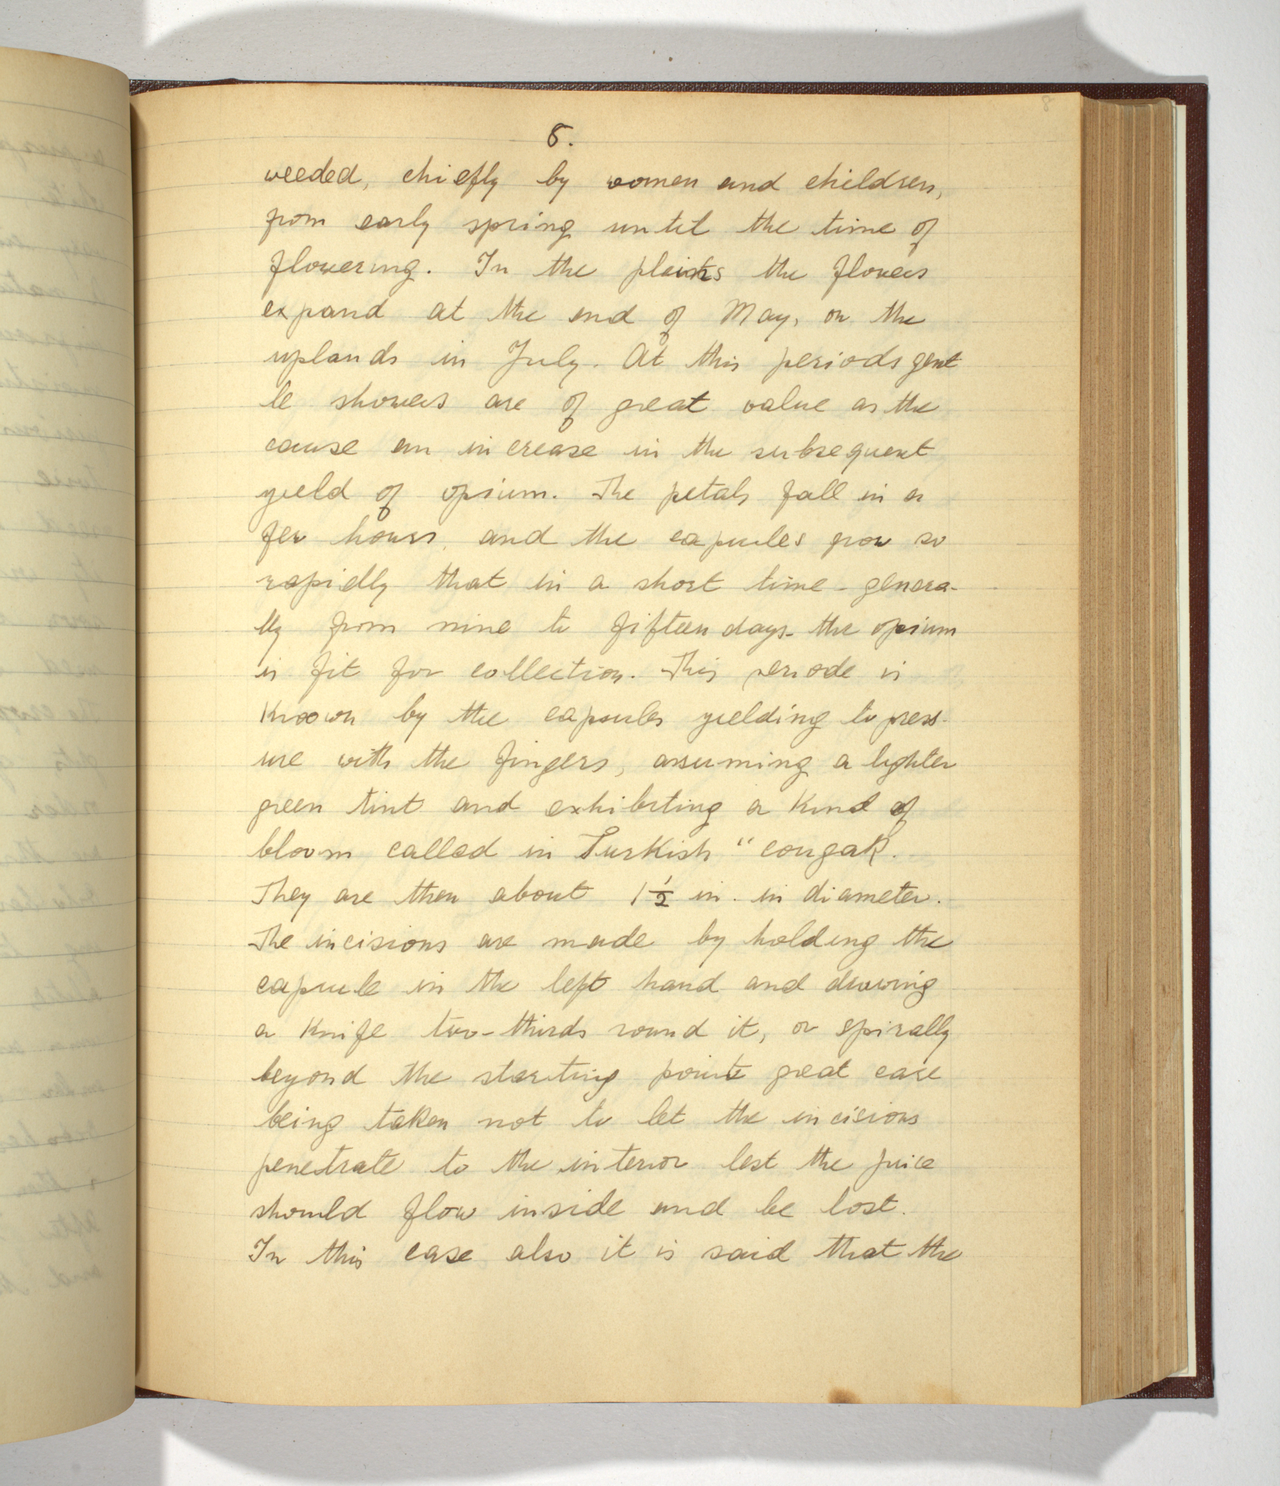 8.
weeded, chiefly by women and children,
from early spring until the time of
flowering. In the plains the flowers
expand at the end of May, on the
uplands in July. At this periods gent
le showers are of great value as the
cause an increase in the subsequent
yield of opium. The petals fall in a
few hours, and the capsules grow so
rapidly that in a short time - genera-
lly from nine to fifteen days - the opium
is fit for collection. This periode is
known by the capsules yielding to press-
ure with the fingers, assuming a lighter
green tint and exhibiting a kind of
bloom called in Turkish "cougak.
They are then about 1 1/2 in. in diameter.
The incisions are made by holding the
capsule in the left hand and drawing
a knife two-thirds round it, or spirally
beyond the starting point great care
being taken not to let the incisions
penetrate to the interior lest the juice
should flow inside and be lost.
In this case also it is said that the